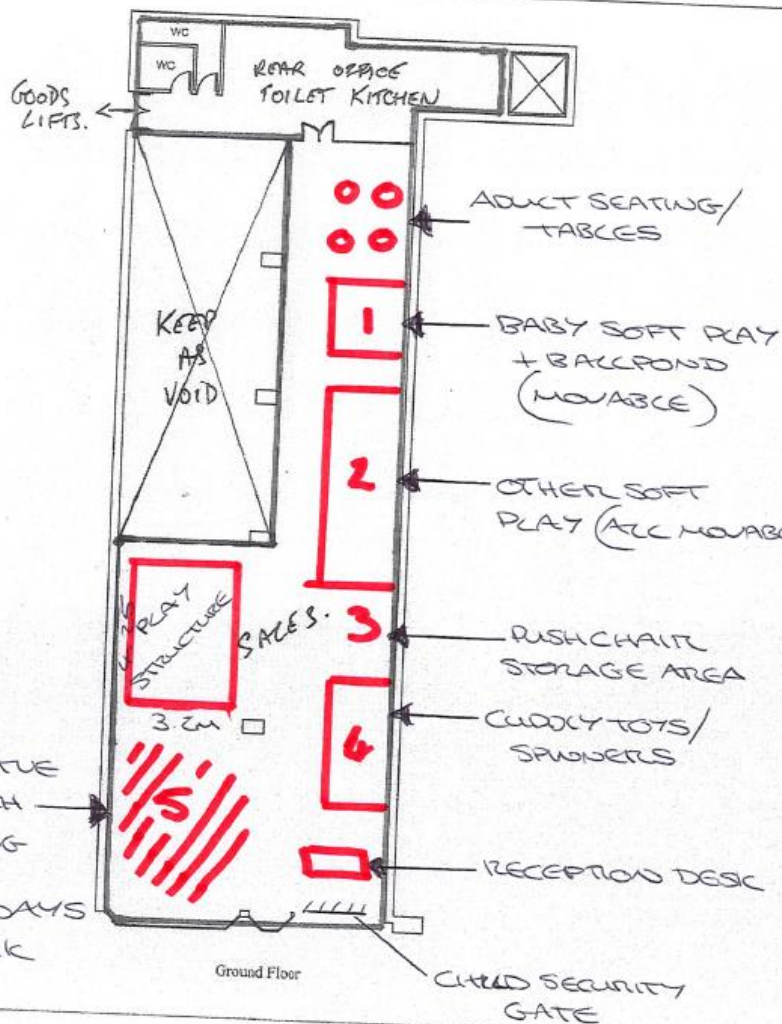 WC
WC
REAR OFFICE
TOILET KITCHEN
GOODS
LIFTS.
ADULT SEATING/
TABLES
KEEP
AS
VOID
1
BABY SOFT PLAY
+ BALLPOND
(MOVABLE)
2
OTHER SOFT
PLAY (ALL MOVAB
PLAY
STRUCTURE
SALES.
3.2M
3
PUSHCHAIR
STORAGE AREA
4
CUDDLY TOYS/
SPINNERS
5
DAYS
RECEPTION DESK
CHILD SECURITY
GATE
Ground Floor